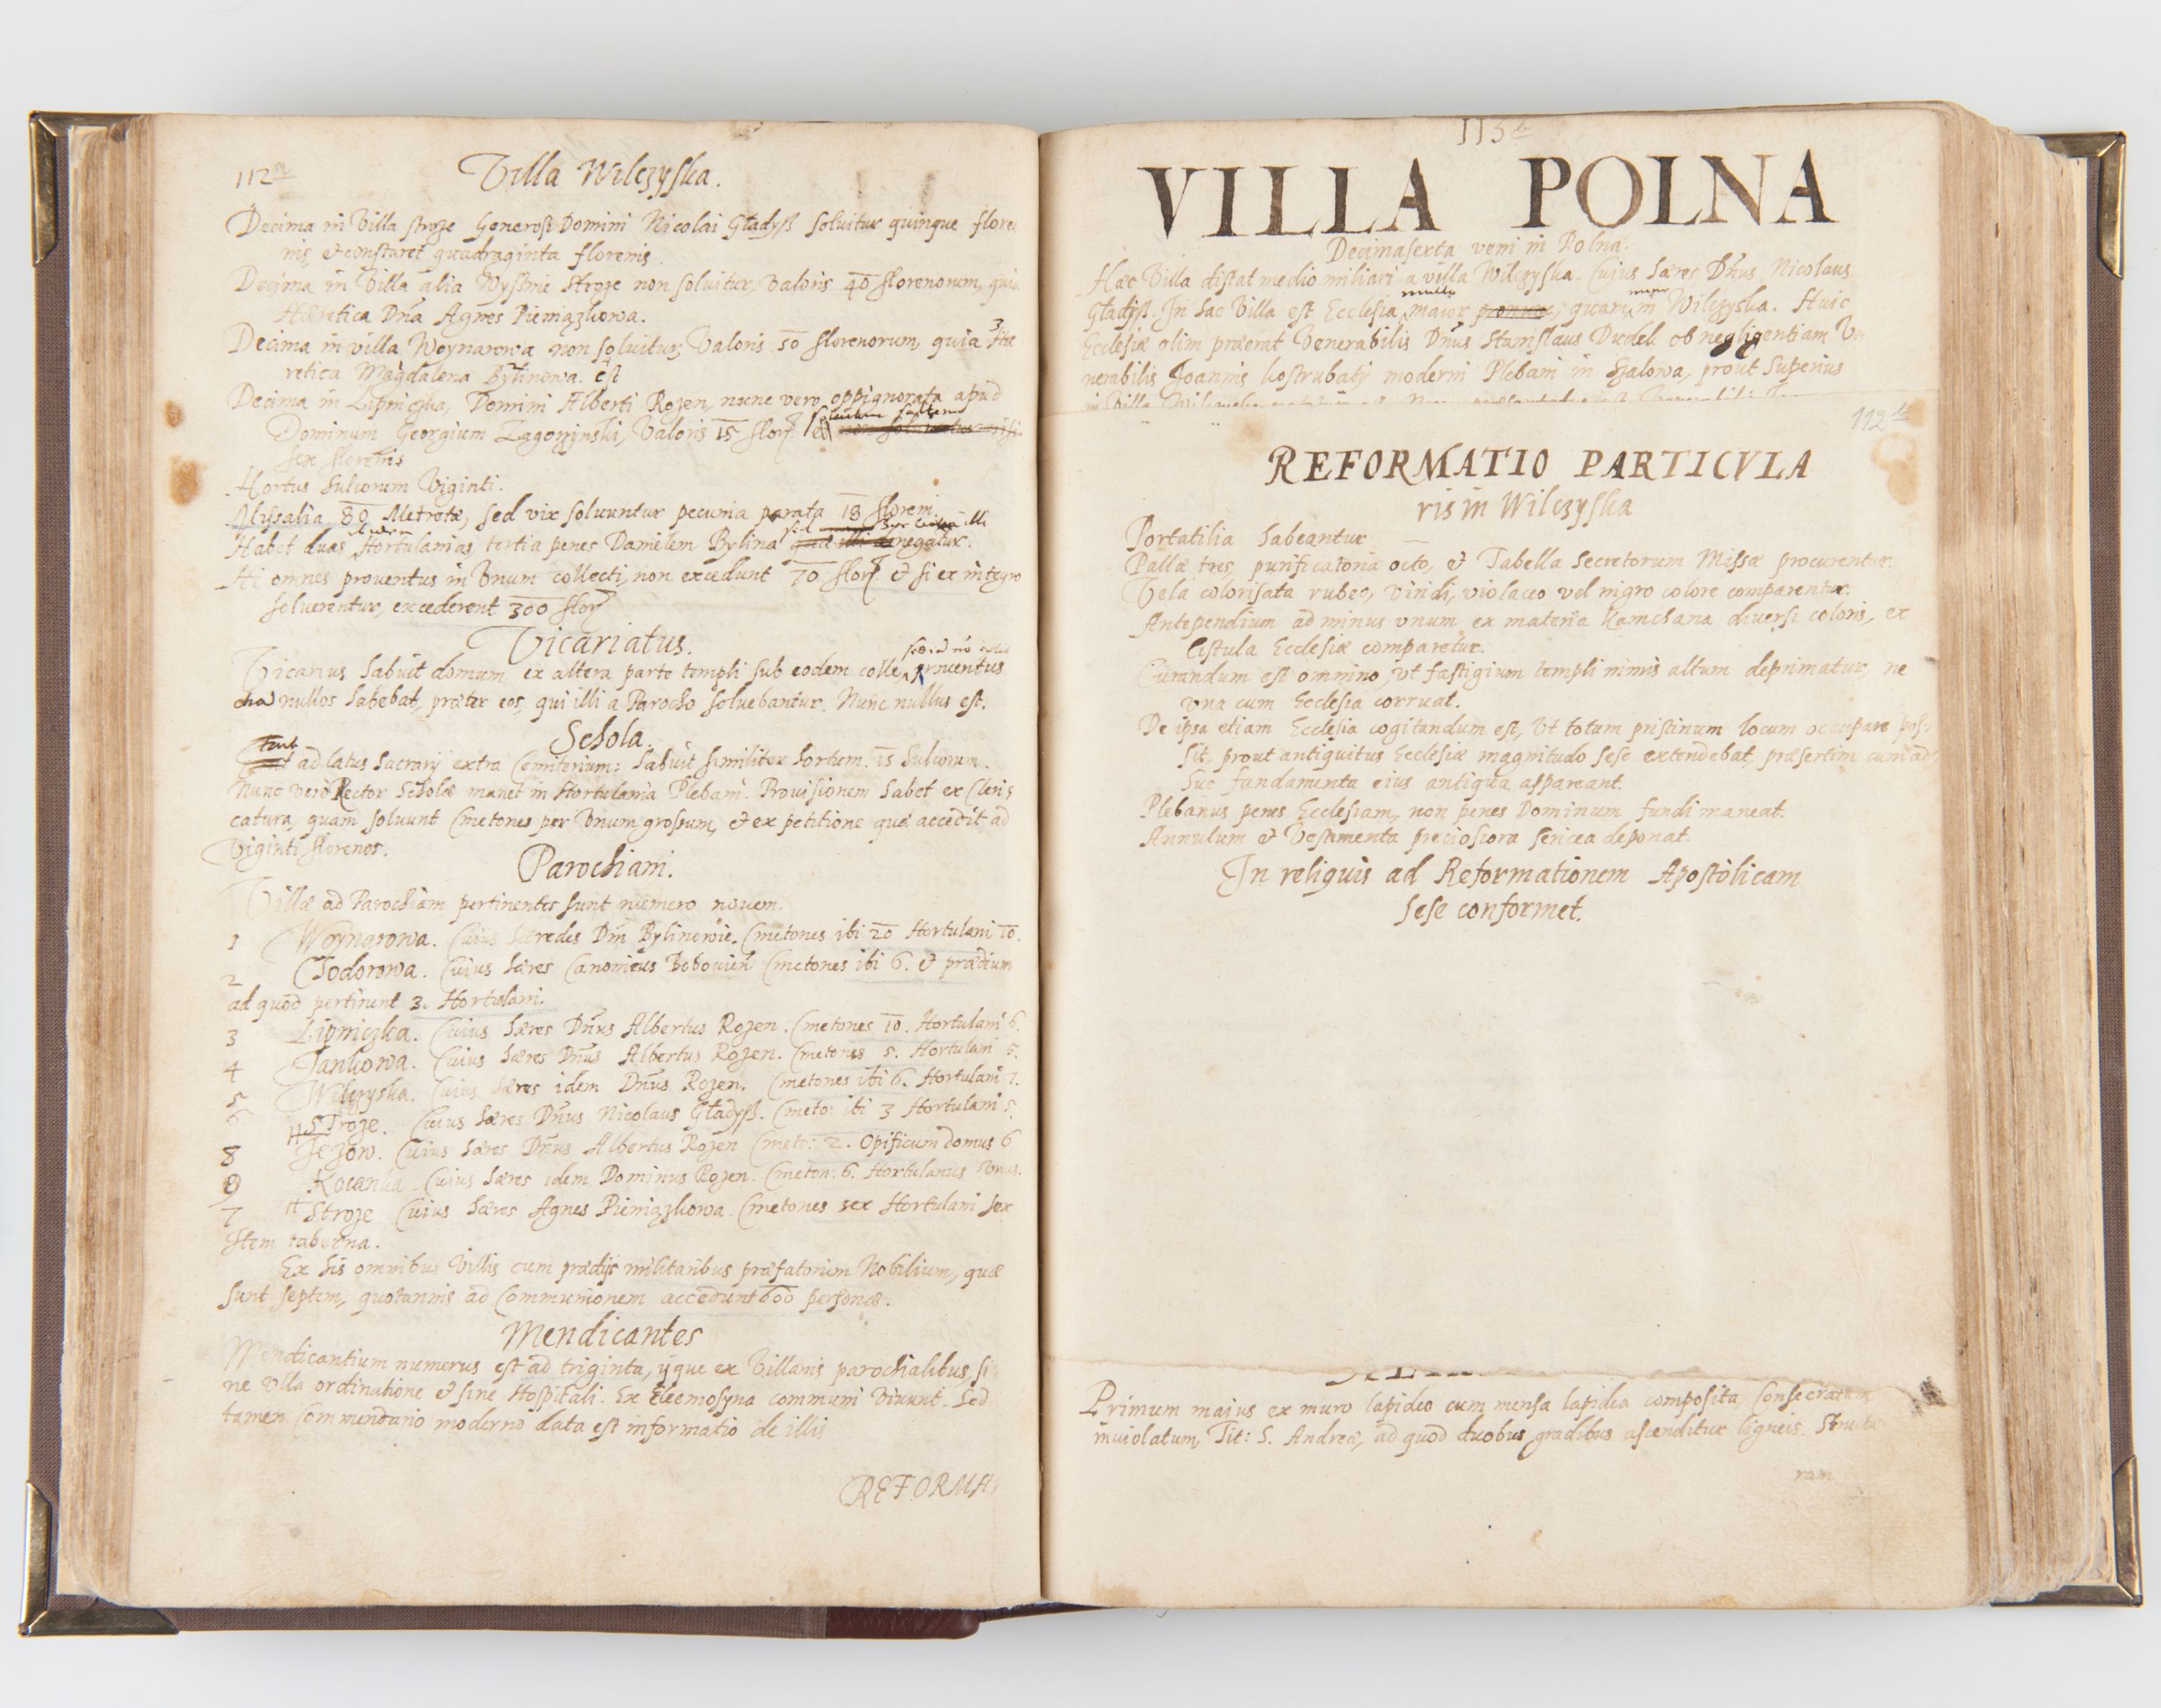 112a
Villa Wilczyska.
Decima in Villa stroze Generosi Domini Nicolai Gładysz soluitur quinque flore
nis, et constaret quadraginta florenis.
Decima in Villa alia Wysznie Stroze non soluitur, Valoris 40 florenorum, quia
Hæretica Dña Agnes Pieniązkowa.
Decima in villa Woynarowa non soluitur, Valoris 50 florenorum, quia Hæ
retica Magdalena Bylinowa. est
Decima in Lipniczka, Domini Alberti Rozen, nunc vero oppignorata apud
Dominum Georgium Zagorzinski, Valoris 15 flor. soluitur saltem
sex florenis
Hortus sulcorum Viginti.
Missalia 80 Metretæ, sed vix soluuntur pecunia parata 18 floreni.
Habet duas Hortulanias, tertia penes Danielem Bylina denegatur.
Hi omnes prouentus in Vnum collecti, non excedunt 70 flor. & si ex integro
soluerentur, excederent 300 flor.
Vicariatus.
Vicarius habuit domum ex altera parte templi sub eodem colle, prouentus
nullos habebat, præter eos, qui illi a Parocho soluebantur. Nunc nullus est.
Schola.
ad latus Sacrarij extra Cemiterium: habuit similiter hortum. 15 sulcorum.
Nunc vero Rector Scholæ manet in Hortulania Plebani. Prouisionem habet ex Cleri
catura, quam soluunt Cmetones per Vnum grossum, & ex petitione quæ accedit ad
Viginti florenos.
Parochiani.
Villæ ad Parochiam pertinentes sunt numero nouem.
1 Woynarowa. Cuius hæredes Dñi Bylinowie. Cmetones ibi 20 Hortulani 10.
2 Chodorowa. Cuius hæres Canonicus Bobouien Cmetones ibi 6. & prædium
ad quod pertinent 3. Hortulani.
3 Lipniczka. Cuius hæres Dñus Albertus Rozen. Cmetones 10. Hortulani 6.
4 Jankowa. Cuius hæres Dñus Albertus Rozen. Cmetones 5. Hortulani 5.
5 Wilczyska. Cuius hæres idem Dñus Rozen. Cmetones ibi 6. Hortulani 7.
6 Stroze. Cuius hæres Dñus Nicolaus Gładysz. Cmeto: ibi 3 Hortulani 5.
8 Jezow. Cuius hæres Dñus Albertus Rozen Cmeto: 2. Opificum domus 6
9 Kocanka. Cuius hæres idem Dominus Rozen. Cmeton: 6. Hortulanus Vnus.
7 Stroze Cuius hæres Agnes Pieniązkowa. Cmetones sex Hortulani sex
Item taberna.
Ex his omnibus Villis cum prædijs militaribus præfatorum Nobilium, quæ
sunt septem, quotannis ad Communionem accedunt 600 personæ.
Mendicantes
Mendicantium numerus est ad triginta, ijque ex Villanis parochialibus si
ne Vlla ordinatione & sine Hospitali. Ex Eleemosyna communi Viuunt. Sed
tamen Commendario moderno data est informatio de illis
REFORMA
113a
VILLA POLNA
Decimasexta veni in Polna.
Hæc Villa distat medio miliari a villa Wilczyska. Cuius hæres Dñus Nicolaus
Gładysz. In hac Villa est Ecclesia multo maior quam in Wilczyska. Huic
Ecclesiæ olim præerat Venerabilis Dñus Stanislaus Dudek ob negligentiam Ve
nerabilis Joannis Kostrubały moderni Plebani in Szalowa, prout superius
112b
REFORMATIO PARTICVLA
ris in Wilczyska
Portatilia habeantur
Pallæ tres, purificatoria octo, & Tabella Secretorum Missæ procurentur.
Vela colorisata rubeo, viridi, violaceo vel nigro colore comparentur.
Antependium ad minus vnum ex materia Kamchana diuersi coloris, ex
Cistula Ecclesiæ comparetur.
Curandum est omnino, vt fastigium templi nimis altum deprimatur, ne
vna cum Ecclesia corruat.
De ipsa etiam Ecclesia cogitandum est, Vt totum pristinum locum occupare pos
sit, prout antiquitus Ecclesiæ magnitudo sese extendebat, præsertim cum ad
huc fundamenta eius antiqua appareant.
Plebanus penes Ecclesiam, non penes Dominum fundi maneat.
Annulum & Vestimenta preciosiora sericea deponat.
In reliquis ad Reformationem Apostolicam
sese conformet.
Primum maius ex muro lapideo cum mensa lapidea composita, Consecratum
inuiolatum, Tit: S. Andreæ, ad quod duobus gradibus ascenditur ligneis. Structu
ram